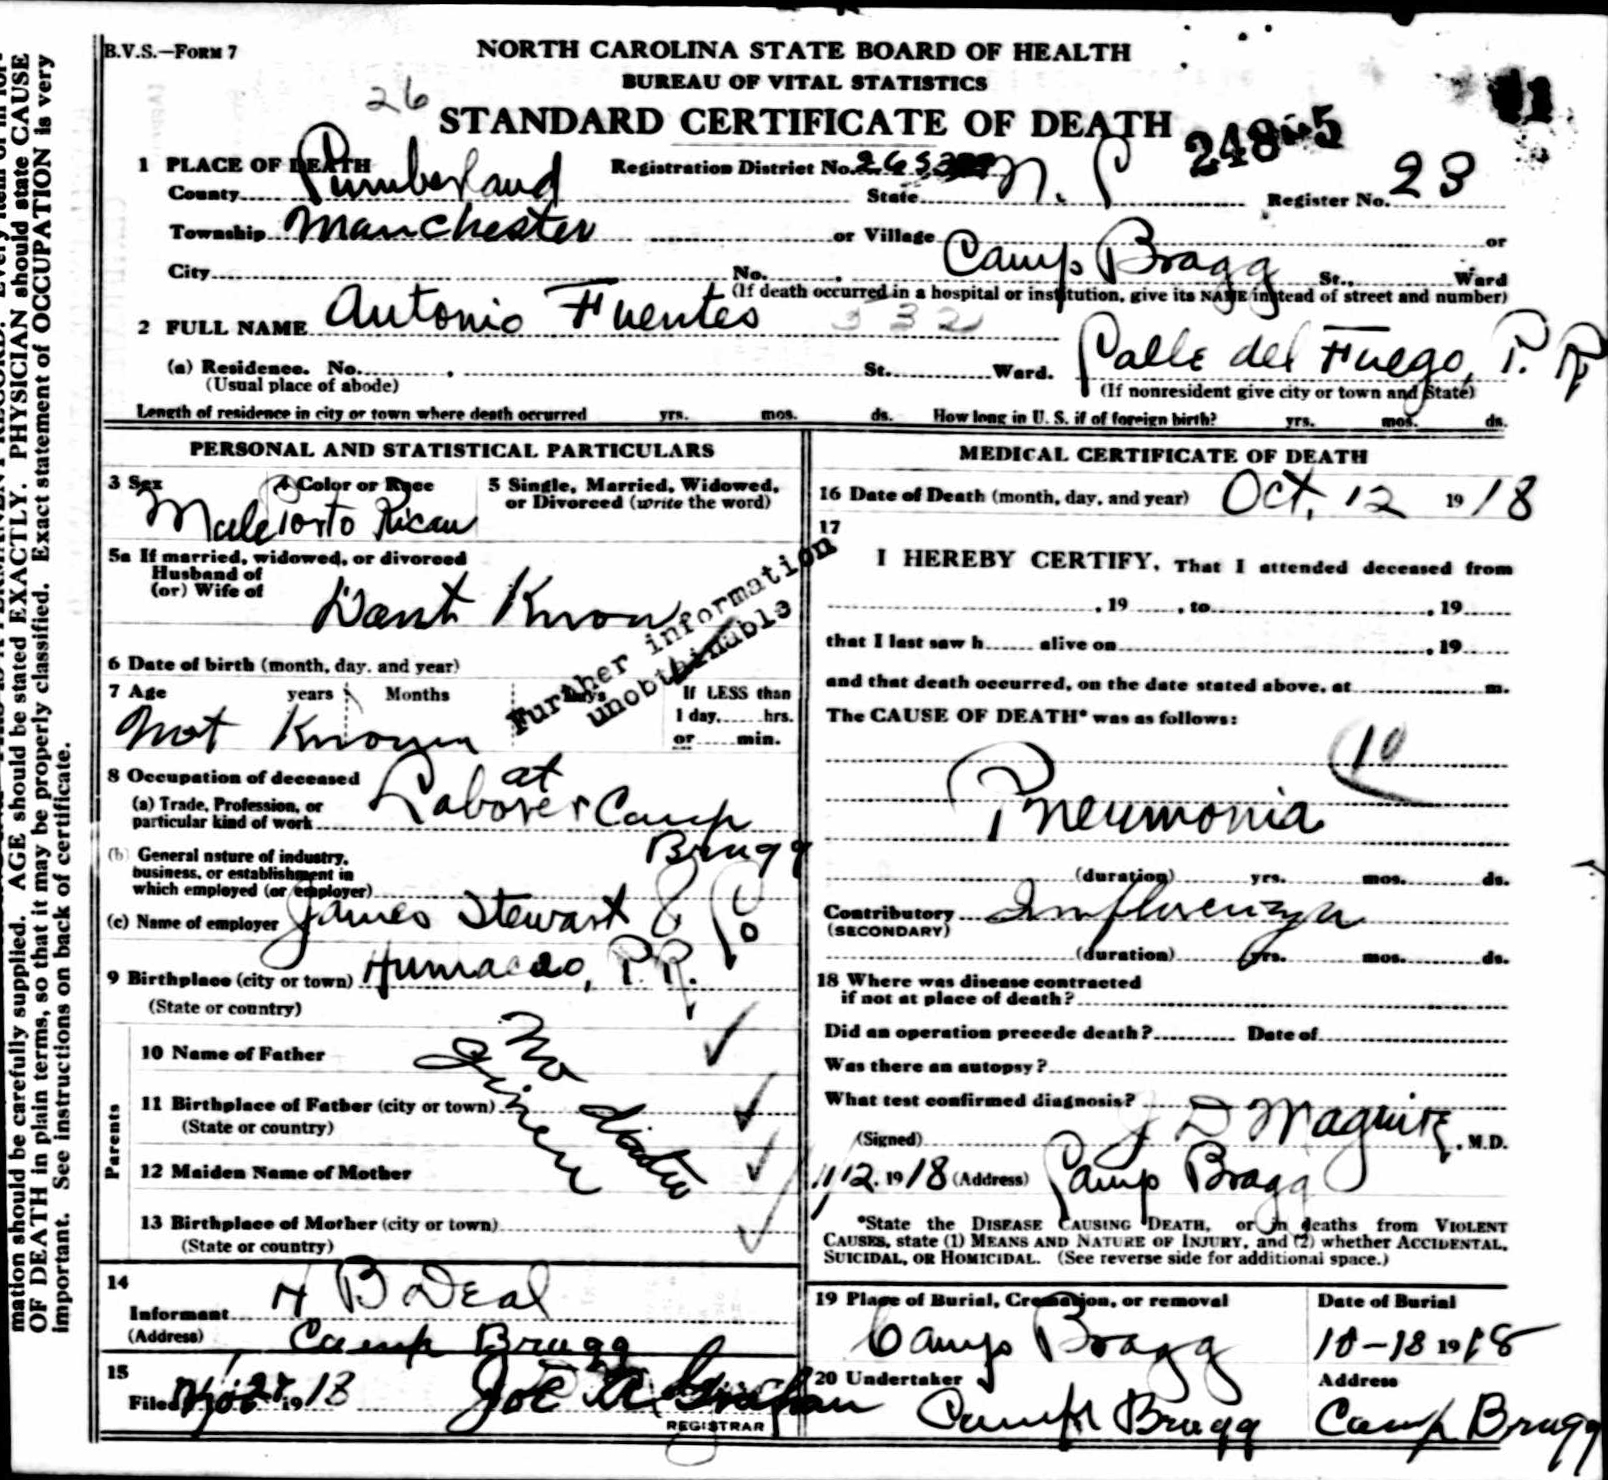 B.V.S.—Form 7
NORTH CAROLINA STATE BOARD OF HEALTH
BUREAU OF VITAL STATISTICS
26
STANDARD CERTIFICATE OF DEATH
1 PLACE OF DEATH
Registration District No.
County Cumberland State N. C Register No. 23
Township Manchester or Village Camp Bragg or
City No. St., Ward
(If death occurred in a hospital or institution, give its NAME instead of street and number)
2 FULL NAME Antonio Fuentes 532
(a) Residence. No. St. Ward. Calle del Fuego, P. R
(Usual place of abode)
(If nonresident give city or town and State)
Length of residence in city or town where death occurred yrs. mos. ds. How long in U. S. if of foreign birth? yrs. mos. ds.
PERSONAL AND STATISTICAL PARTICULARS
3 Sex 4 Color or Race 5 Single, Married, Widowed, or Divorced (write the word)
Male Porto Rican
5a If married, widowed, or divorced
Husband of
(or) Wife of
Dont Know
Further information
unobtainable
6 Date of birth (month, day, and year)
7 Age years Months Days If LESS than
1 day, hrs.
or min.
Not Known
8 Occupation of deceased
(a) Trade, Profession, or
particular kind of work
Laborer at Camp
Bragg
(b) General nature of industry,
business, or establishment in
which employed (or employer)
(c) Name of employer James Stewart & Co
9 Birthplace (city or town) Humacao, P.R.
(State or country)
Parents
10 Name of Father
11 Birthplace of Father (city or town)
(State or country)
12 Maiden Name of Mother
13 Birthplace of Mother (city or town)
(State or country)
No data
given
14
Informant H B Deal
(Address) Camp Bragg
15
Filed 1918
REGISTRAR
MEDICAL CERTIFICATE OF DEATH
16 Date of Death (month, day, and year) Oct. 12 1918
17
I HEREBY CERTIFY, That I attended deceased from
, 19 , to , 19
that I last saw h alive on , 19
and that death occurred, on the date stated above, at m.
The CAUSE OF DEATH* was as follows:
10
Pneumonia
(duration) yrs. mos. ds.
Contributory Influenza
(SECONDARY)
(duration) yrs. mos. ds.
18 Where was disease contracted
if not at place of death?
Did an operation precede death? Date of
Was there an autopsy?
What test confirmed diagnosis?
(Signed) J D Maguire, M.D.
11/12, 1918 (Address) Camp Bragg
*State the DISEASE CAUSING DEATH, or in deaths from VIOLENT
CAUSES, state (1) MEANS AND NATURE OF INJURY, and (2) whether ACCIDENTAL,
SUICIDAL, OR HOMICIDAL. (See reverse side for additional space.)
19 Place of Burial, Cremation, or removal Date of Burial
Camp Bragg 10-18 1918
20 Undertaker Address
Camp Bragg Camp Bragg
mation should be carefully supplied. AGE should be stated EXACTLY. PHYSICIAN should state CAUSE
OF DEATH in plain terms, so that it may be properly classified. Exact statement of OCCUPATION is very
important. See instructions on back of certificate.